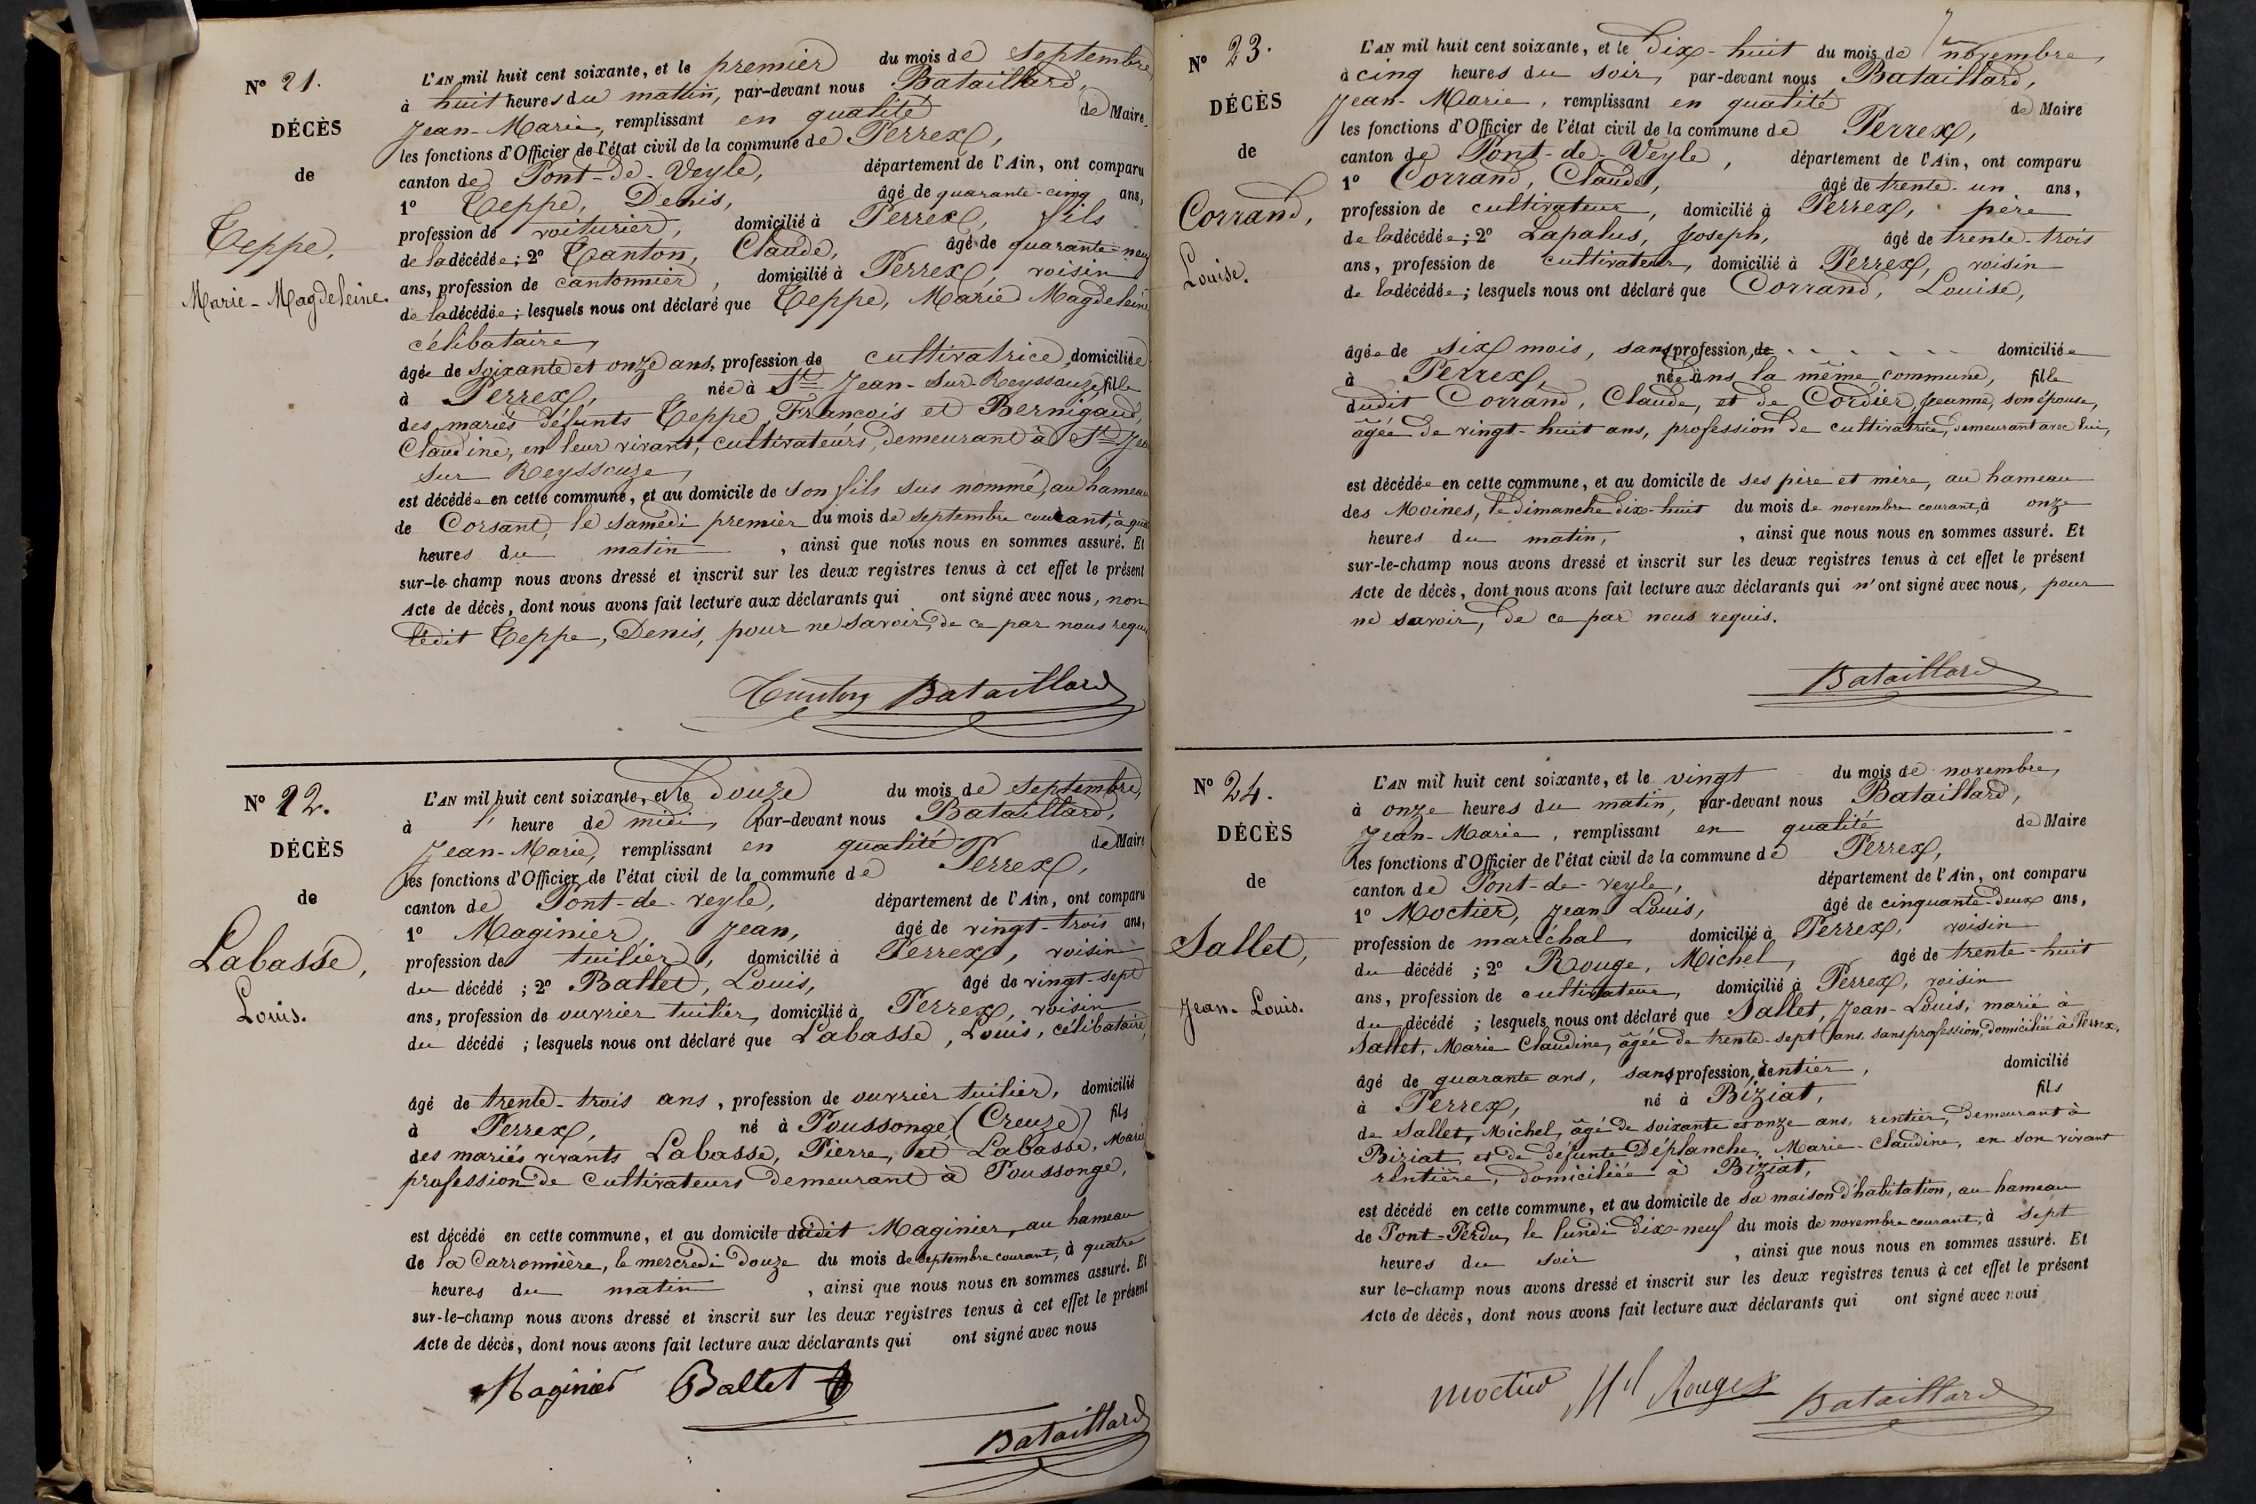 N° 21.
DÉCÈS
de
Teppe,
Marie-Magdeleine.
L'AN mil huit cent soixante, et le premier du mois de septembre
à huit heures du matin, par-devant nous Bataillard,
Jean-Marie, remplissant en qualité de Maire
les fonctions d'Officier de l'état civil de la commune de Perrex,
canton de Pont-de-Veyle, département de l'Ain, ont comparu
1° Teppe, Denis, âgé de quarante-cinq ans,
profession de voiturier, domicilié à Perrex, fils
de la décédée; 2° Tanton, Claude, âgé de quarante-neuf
ans, profession de cantonnier, domicilié à Perrex, voisin
de la décédée; lesquels nous ont déclaré que Teppe, Marie Magdeleine
célibataire,
âgée de soixante et onze ans, profession de cultivatrice, domiciliée
à Perrex, née à St Jean-sur-Reyssouze, fille
des mariés défunts Teppe François et Bernigaud,
Claudine, en leur vivant, cultivateurs, demeurant à St Jean
sur Reyssouze,
est décédée en cette commune, et au domicile de son fils sus nommé, au hameau
de Corsant, le samedi premier du mois de septembre courant, à
heures du matin, ainsi que nous nous en sommes assuré. Et
sur-le-champ nous avons dressé et inscrit sur les deux registres tenus à cet effet le présent
Acte de décès, dont nous avons fait lecture aux déclarants qui ont signé avec nous, non
ledit Teppe, Denis, pour ne savoir, de ce par nous requis
Tanton Bataillard
N° 22.
DÉCÈS
de
Labasse,
Louis.
L'AN mil huit cent soixante, et le douze du mois de septembre,
à l'heure de midi, par-devant nous Bataillard,
Jean-Marie, remplissant en qualité de Maire
les fonctions d'Officier de l'état civil de la commune de Perrex,
canton de Pont-de-veyle, département de l'Ain, ont comparu
1° Maginier, Jean, âgé de vingt-trois ans,
profession de tuilier, domicilié à Perrex, voisin
du décédé; 2° Ballet, Louis, âgé de vingt-sept
ans, profession de ouvrier tuilier, domicilié à Perrex, voisin
du décédé; lesquels nous ont déclaré que Labasse, Louis, célibataire,
âgé de trente-trois ans, profession de ouvrier tuilier, domicilié
à Perrex, né à Poussonge (Creuze) fils
des mariés vivants Labasse, Pierre, et Labasse, Marie
profession de cultivateurs demeurant à Poussonge,
est décédé en cette commune, et au domicile dudit Maginier, au hameau
de la Carronnière, le mercredi douze du mois de septembre courant, à quatre
heures du matin, ainsi que nous nous en sommes assuré. Et
sur-le-champ nous avons dressé et inscrit sur les deux registres tenus à cet effet le présent
Acte de décès, dont nous avons fait lecture aux déclarants qui ont signé avec nous
Maginier Ballet
Bataillard
N° 23.
DÉCÈS
de
Corrand,
Louise.
L'AN mil huit cent soixante, et le dix-huit du mois de novembre,
à cinq heures du soir, par-devant nous Bataillard,
Jean-Marie, remplissant en qualité de Maire
les fonctions d'Officier de l'état civil de la commune de Perrex,
canton de Pont-de-Veyle, département de l'Ain, ont comparu
1° Corrand, Claude, âgé de trente-un ans,
profession de cultivateur, domicilié à Perrex, père
de la décédée; 2° Lapalus, Joseph, âgé de trente-trois
ans, profession de cultivateur, domicilié à Perrex, voisin
de la décédée; lesquels nous ont déclaré que Corrand, Louise,
âgée de six mois, sans profession, de domiciliée
à Perrex, née dans la même commune, fille
dudit Corrand, Claude, et de Cordier, Jeanne, son épouse,
âgée de vingt-huit ans, profession de cultivatrice, demeurant avec lui,
est décédée en cette commune, et au domicile de ses père et mère, au hameau
des Moines, le dimanche dix-huit du mois de novembre courant, à onze
heures du matin, ainsi que nous nous en sommes assuré. Et
sur-le-champ nous avons dressé et inscrit sur les deux registres tenus à cet effet le présent
Acte de décès, dont nous avons fait lecture aux déclarants qui n'ont signé avec nous, pour
ne savoir, de ce par nous requis.
Bataillard
N° 24.
DÉCÈS
de
Sallet,
Jean-Louis.
L'AN mil huit cent soixante, et le vingt du mois de novembre,
à onze heures du matin, par-devant nous Bataillard,
Jean-Marie, remplissant en qualité de Maire
les fonctions d'Officier de l'état civil de la commune de Perrex,
canton de Pont-de-veyle, département de l'Ain, ont comparu
1° Moctier, Jean Louis, âgé de cinquante-deux ans,
profession de maréchal domicilié à Perrex, voisin
du décédé; 2° Rouge, Michel, âgé de trente-huit
ans, profession de cultivateur, domicilié à Perrex, voisin
du décédé; lesquels nous ont déclaré que Sallet, Jean-Louis, marié à
Sallet, Marie Claudine, âgée de trente-sept ans, sans profession, domiciliée à Perrex,
âgé de quarante ans, sans profession, rentier, domicilié
à Perrex, né à Biziat, fils
de Sallet, Michel, âgé de soixante et onze ans, rentier, demeurant à
Biziat, et de défunte Déplanche, Marie-Claudine, en son vivant
rentière, domiciliée à Biziat,
est décédé en cette commune, et au domicile de sa maison d'habitation, au hameau
de Pont-Perdu, le lundi dix-neuf du mois de novembre courant, à sept
heures du soir, ainsi que nous nous en sommes assuré. Et
sur le-champ nous avons dressé et inscrit sur les deux registres tenus à cet effet le présent
Acte de décès, dont nous avons fait lecture aux déclarants qui ont signé avec nous
Moctier Mel Rouge Bataillard